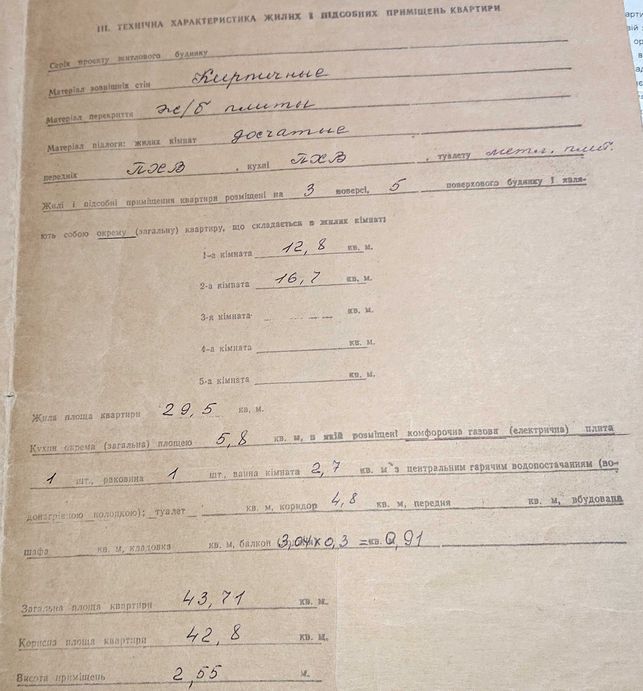 III. ТЕХНІЧНА ХАРАКТЕРИСТИКА ЖИЛИХ І ПІДСОБНИХ ПРИМІЩЕНЬ КВАРТИРИ
Серія проекту житлового будинку
Матеріал зовнішніх стін Кирпичные
Матеріал перекриття ж/б плиты
Матеріал підлоги: жилих кімнат досчатые
передніх ПХВ, кухні ПХВ, туалету метл. плит.
Жилі і підсобні приміщення квартири розміщені на 3 поверсі, 5 поверхового будинку і явля-
ють собою окрему (загальну) квартиру, що складається з жилих кімнат:
1-а кімната 12,8 кв. м.
2-а кімната 16,7 кв. м.
3-я кімната кв. м.
4-а кімната кв. м.
5-а кімната кв. м.
Жила площа квартири 29,5 кв. м.
Кухня окрема (загальна) площею 5,8 кв. м, в якій розміщені комфорочна газова (електрична) плита
1 шт., раковина 1 шт., ванна кімната 2,7 кв. м з центральним гарячим водопостачанням (во-
донагрівною колонкою); туалет кв. м, коридор 4,8 кв. м, передня кв. м, вбудована
шафа кв. м, кладовка кв. м, балкон 3,04 х 0,3 = кв. м 0,91
Загальна площа квартири 43,71 кв. м.
Корисна площа квартири 42,8 кв. м.
Висота приміщень 2,55 м.